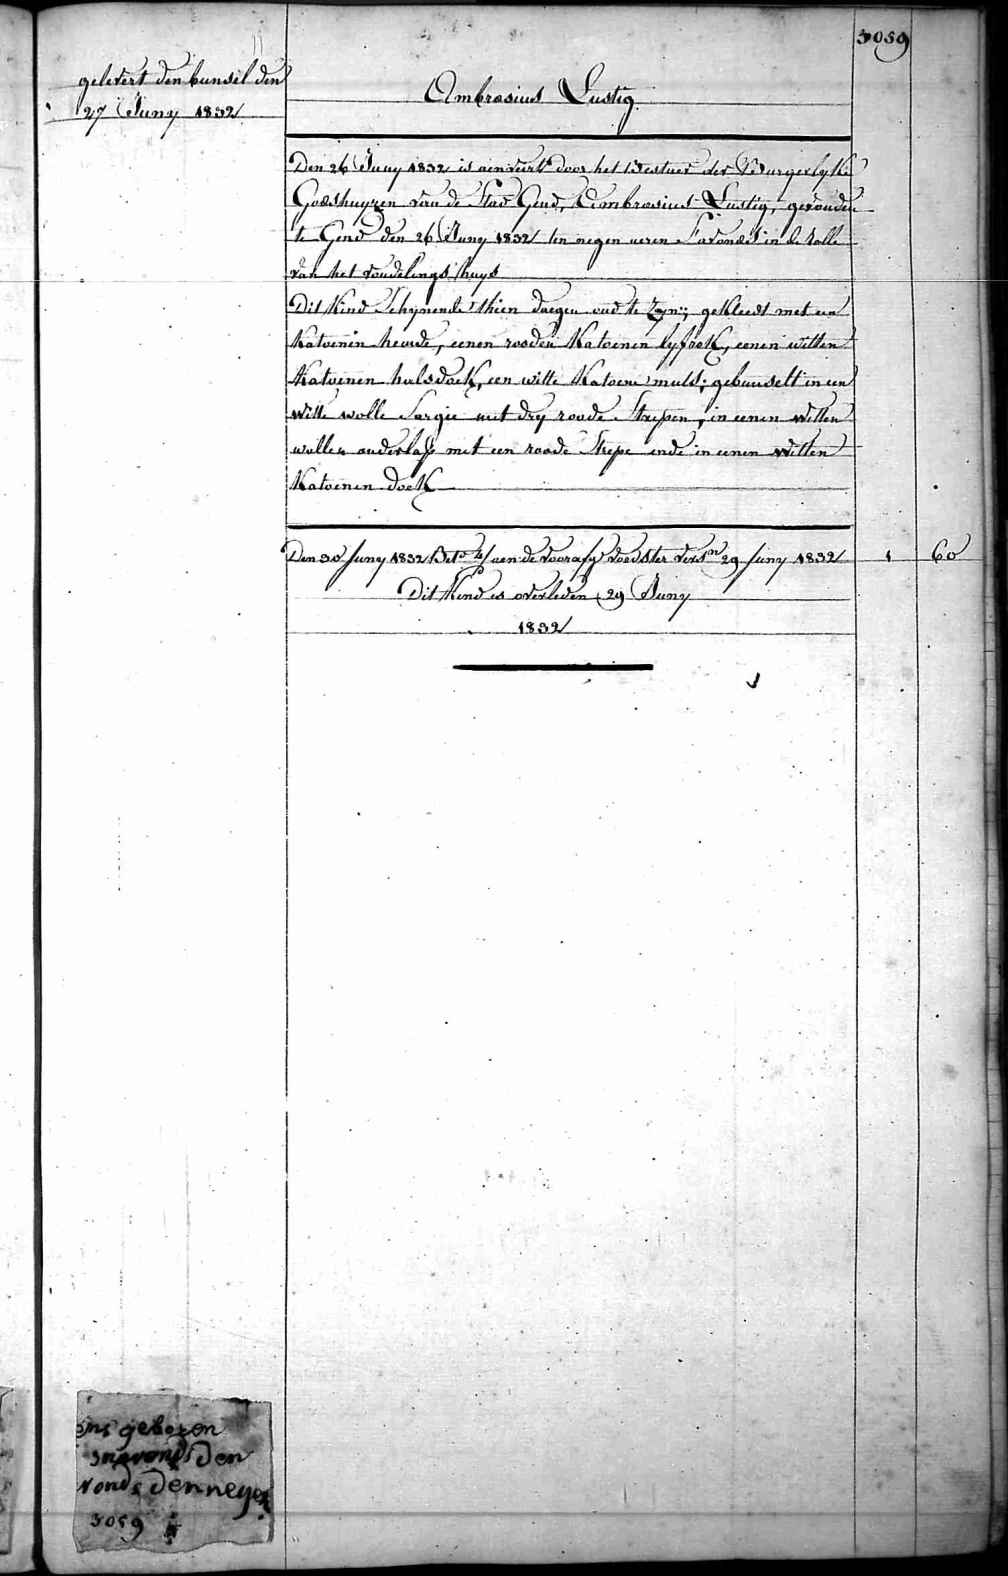 3059
gelevert den bunsel den
27 Juny 1832
Ambrosius Lustig
Den 26 Juny 1832 is aenveert door het Bestuer der Burgerlyke
Godshuyzen van de Stad Gend, Ambrosius Lustig, gevonden
te Gend den 26 Juny 1832 ten negen ueren s'avonds in de rolle
van het vondelings huys
Dit Kind schynende thien daegen oud te zyn; gekleedt met een
Katoenen hemde, eenen rooden Katoenen lyfrok, eenen witten
Katoenen halsdoek, een witte Katoene muts; gebunselt in een
witte wolle Sargie met dry roode Strepen, in eenen witten
wollen onderlap met een roode Strepe ende in eenen witten
Katoenen doek
Den 30 Juny 1832 aen de voedster 29 Juny 1832 1 60
Dit Kind is overleden 29 Juny
1832
ens geboren
snavonds den
vonds den neges
3059